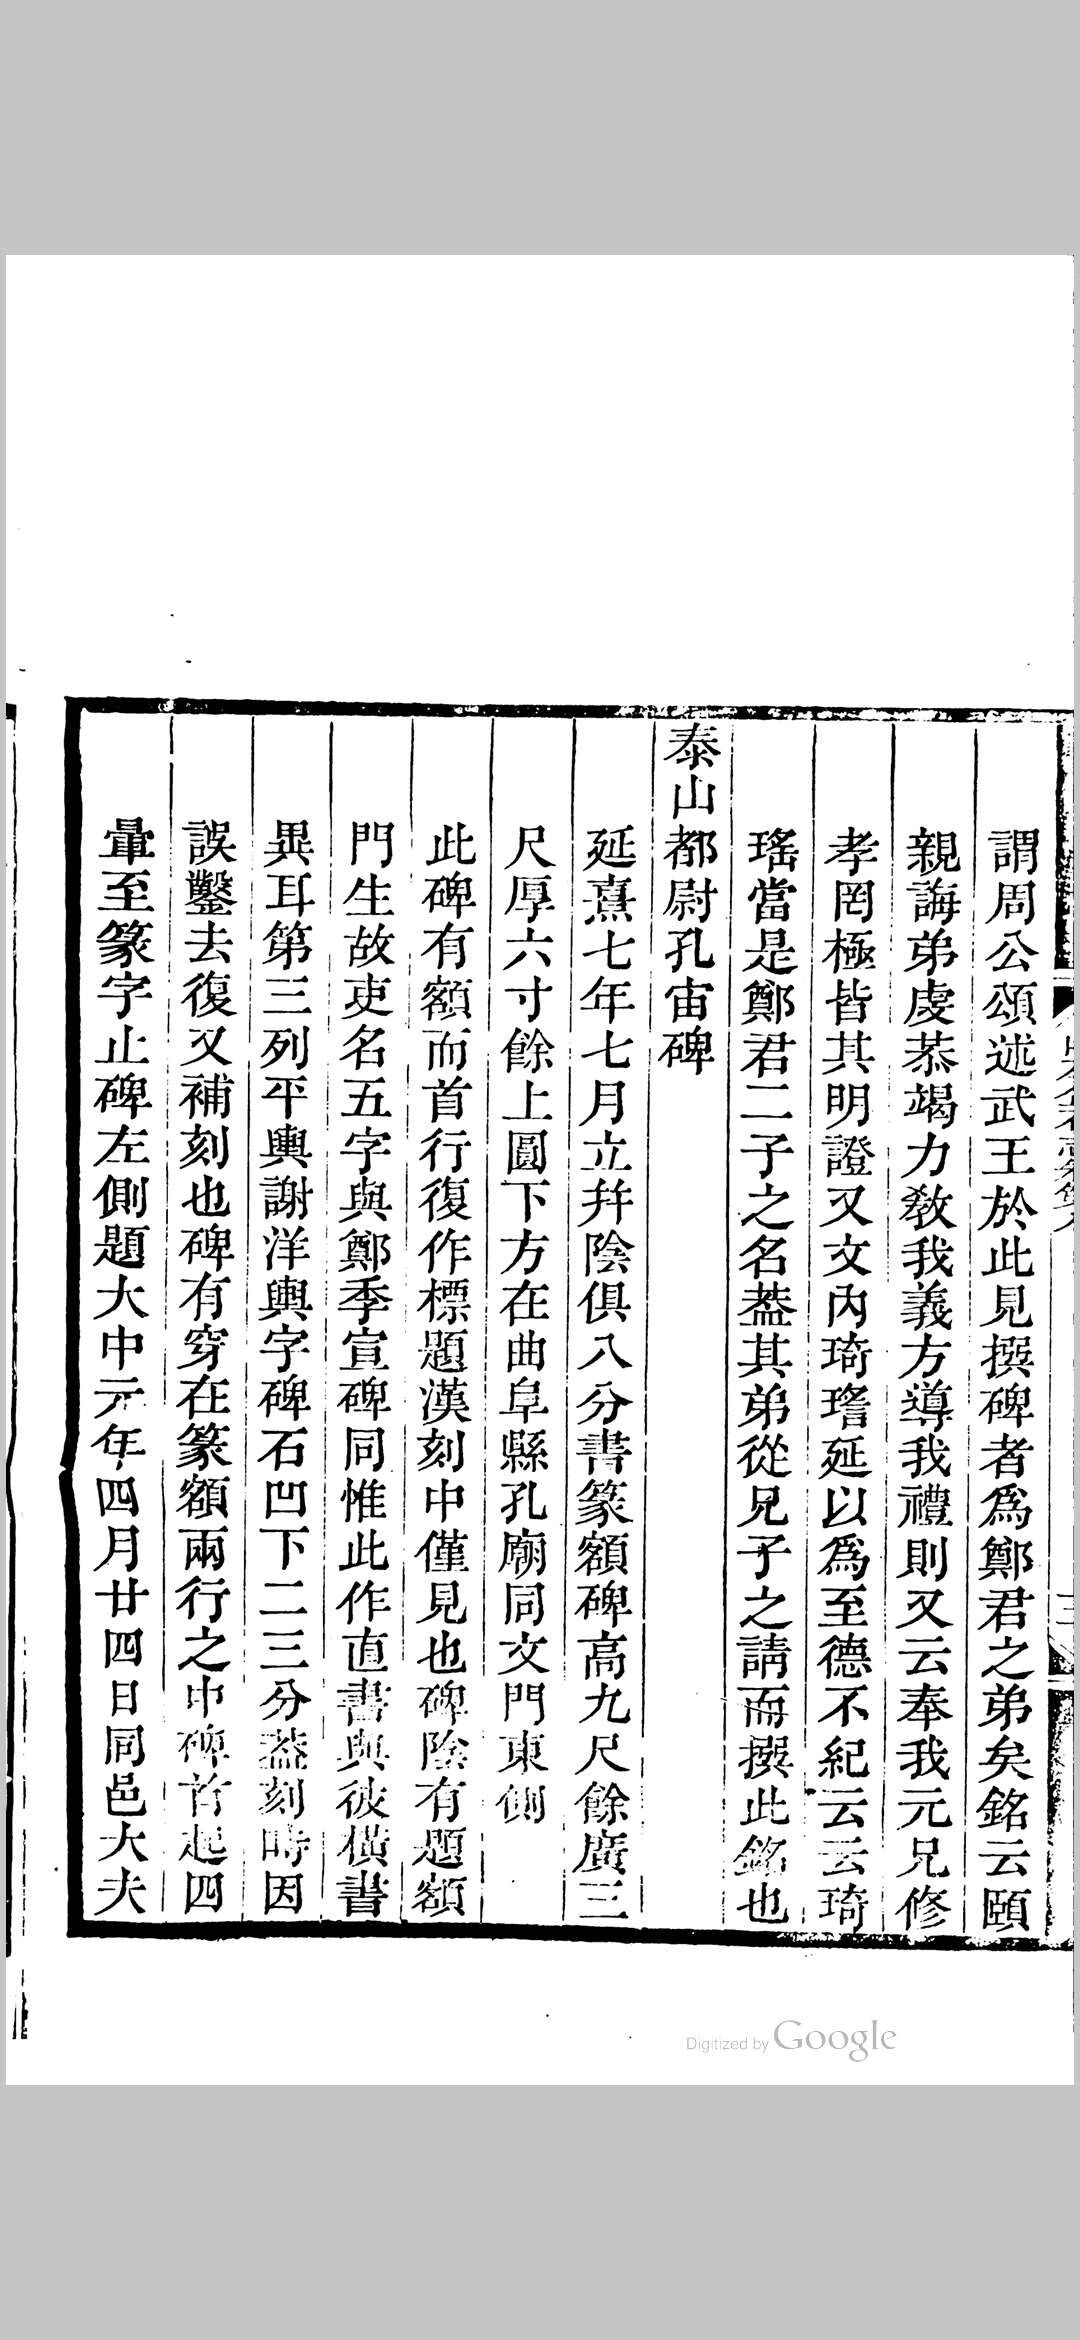 謂周公頌述武王於此見撰碑者爲鄭君之弟矣銘云頤
親誨弟虔恭竭力敎我義方導我禮則又云奉我元兄修
孝罔極皆其明證又文內琦瑻延以爲至德不紀云云琦
瑤當是鄭君二子之名葢其弟從兄子之請而撰此銘也
泰山都尉孔宙碑
延熹七年七月立幷陰俱八分書篆額碑高九尺餘廣三
尺厚六寸餘上圓下方在曲阜縣孔廟同文門東側
此碑有額而首行復作標題漢刻中僅見也碑陰有題額
門生故吏名五字與鄭季宣碑同惟此作直書與彼橫書
異耳第三列平輿謝洋輿字碑石凹下二三分葢刻時因
誤鑿去復又補刻也碑有穿在篆額兩行之中碑首起四
暈至篆字止碑左側題大中元年四月廿四日同邑大夫
Digitized by Google